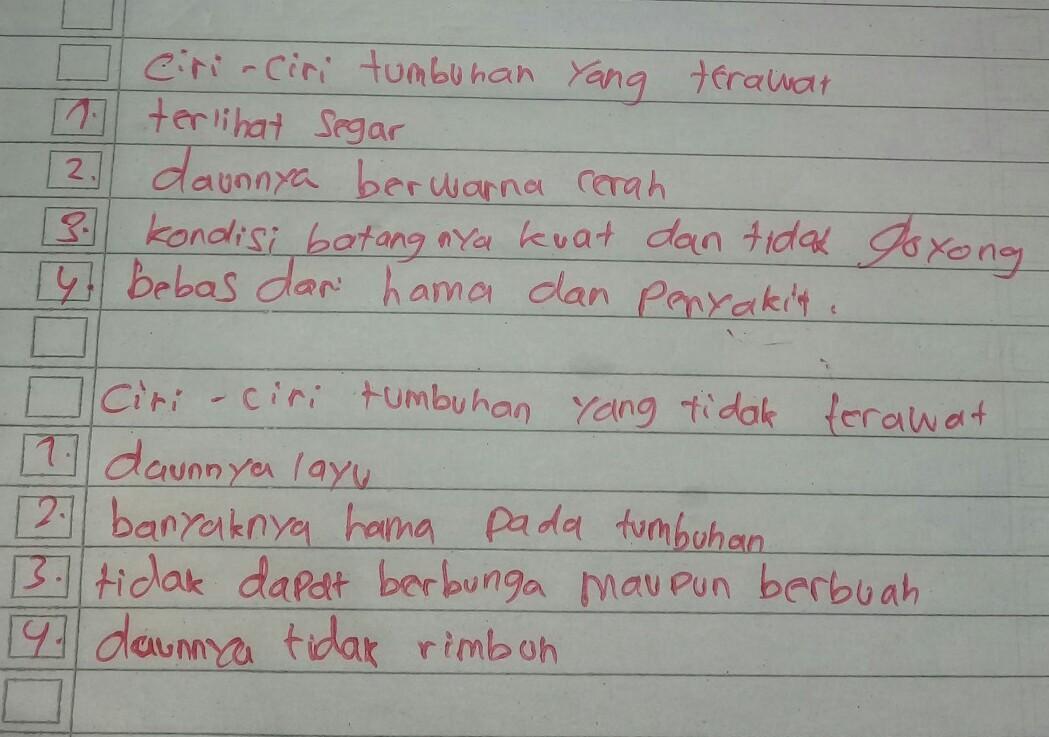 Ciri-Ciri tumbuhan yang terawat
1. terlihat segar
2. daunnya berwarna cerah
3. kondisi batangnya kuat dan tidak goyong
4. bebas dari hama dan penyakit.
Ciri-ciri tumbuhan yang tidak terawat
1. daunnya layu
2. banyaknya hama pada tumbuhan
3. tidak dapat berbunga maupun berbuah
4. daunnya tidak rimbun